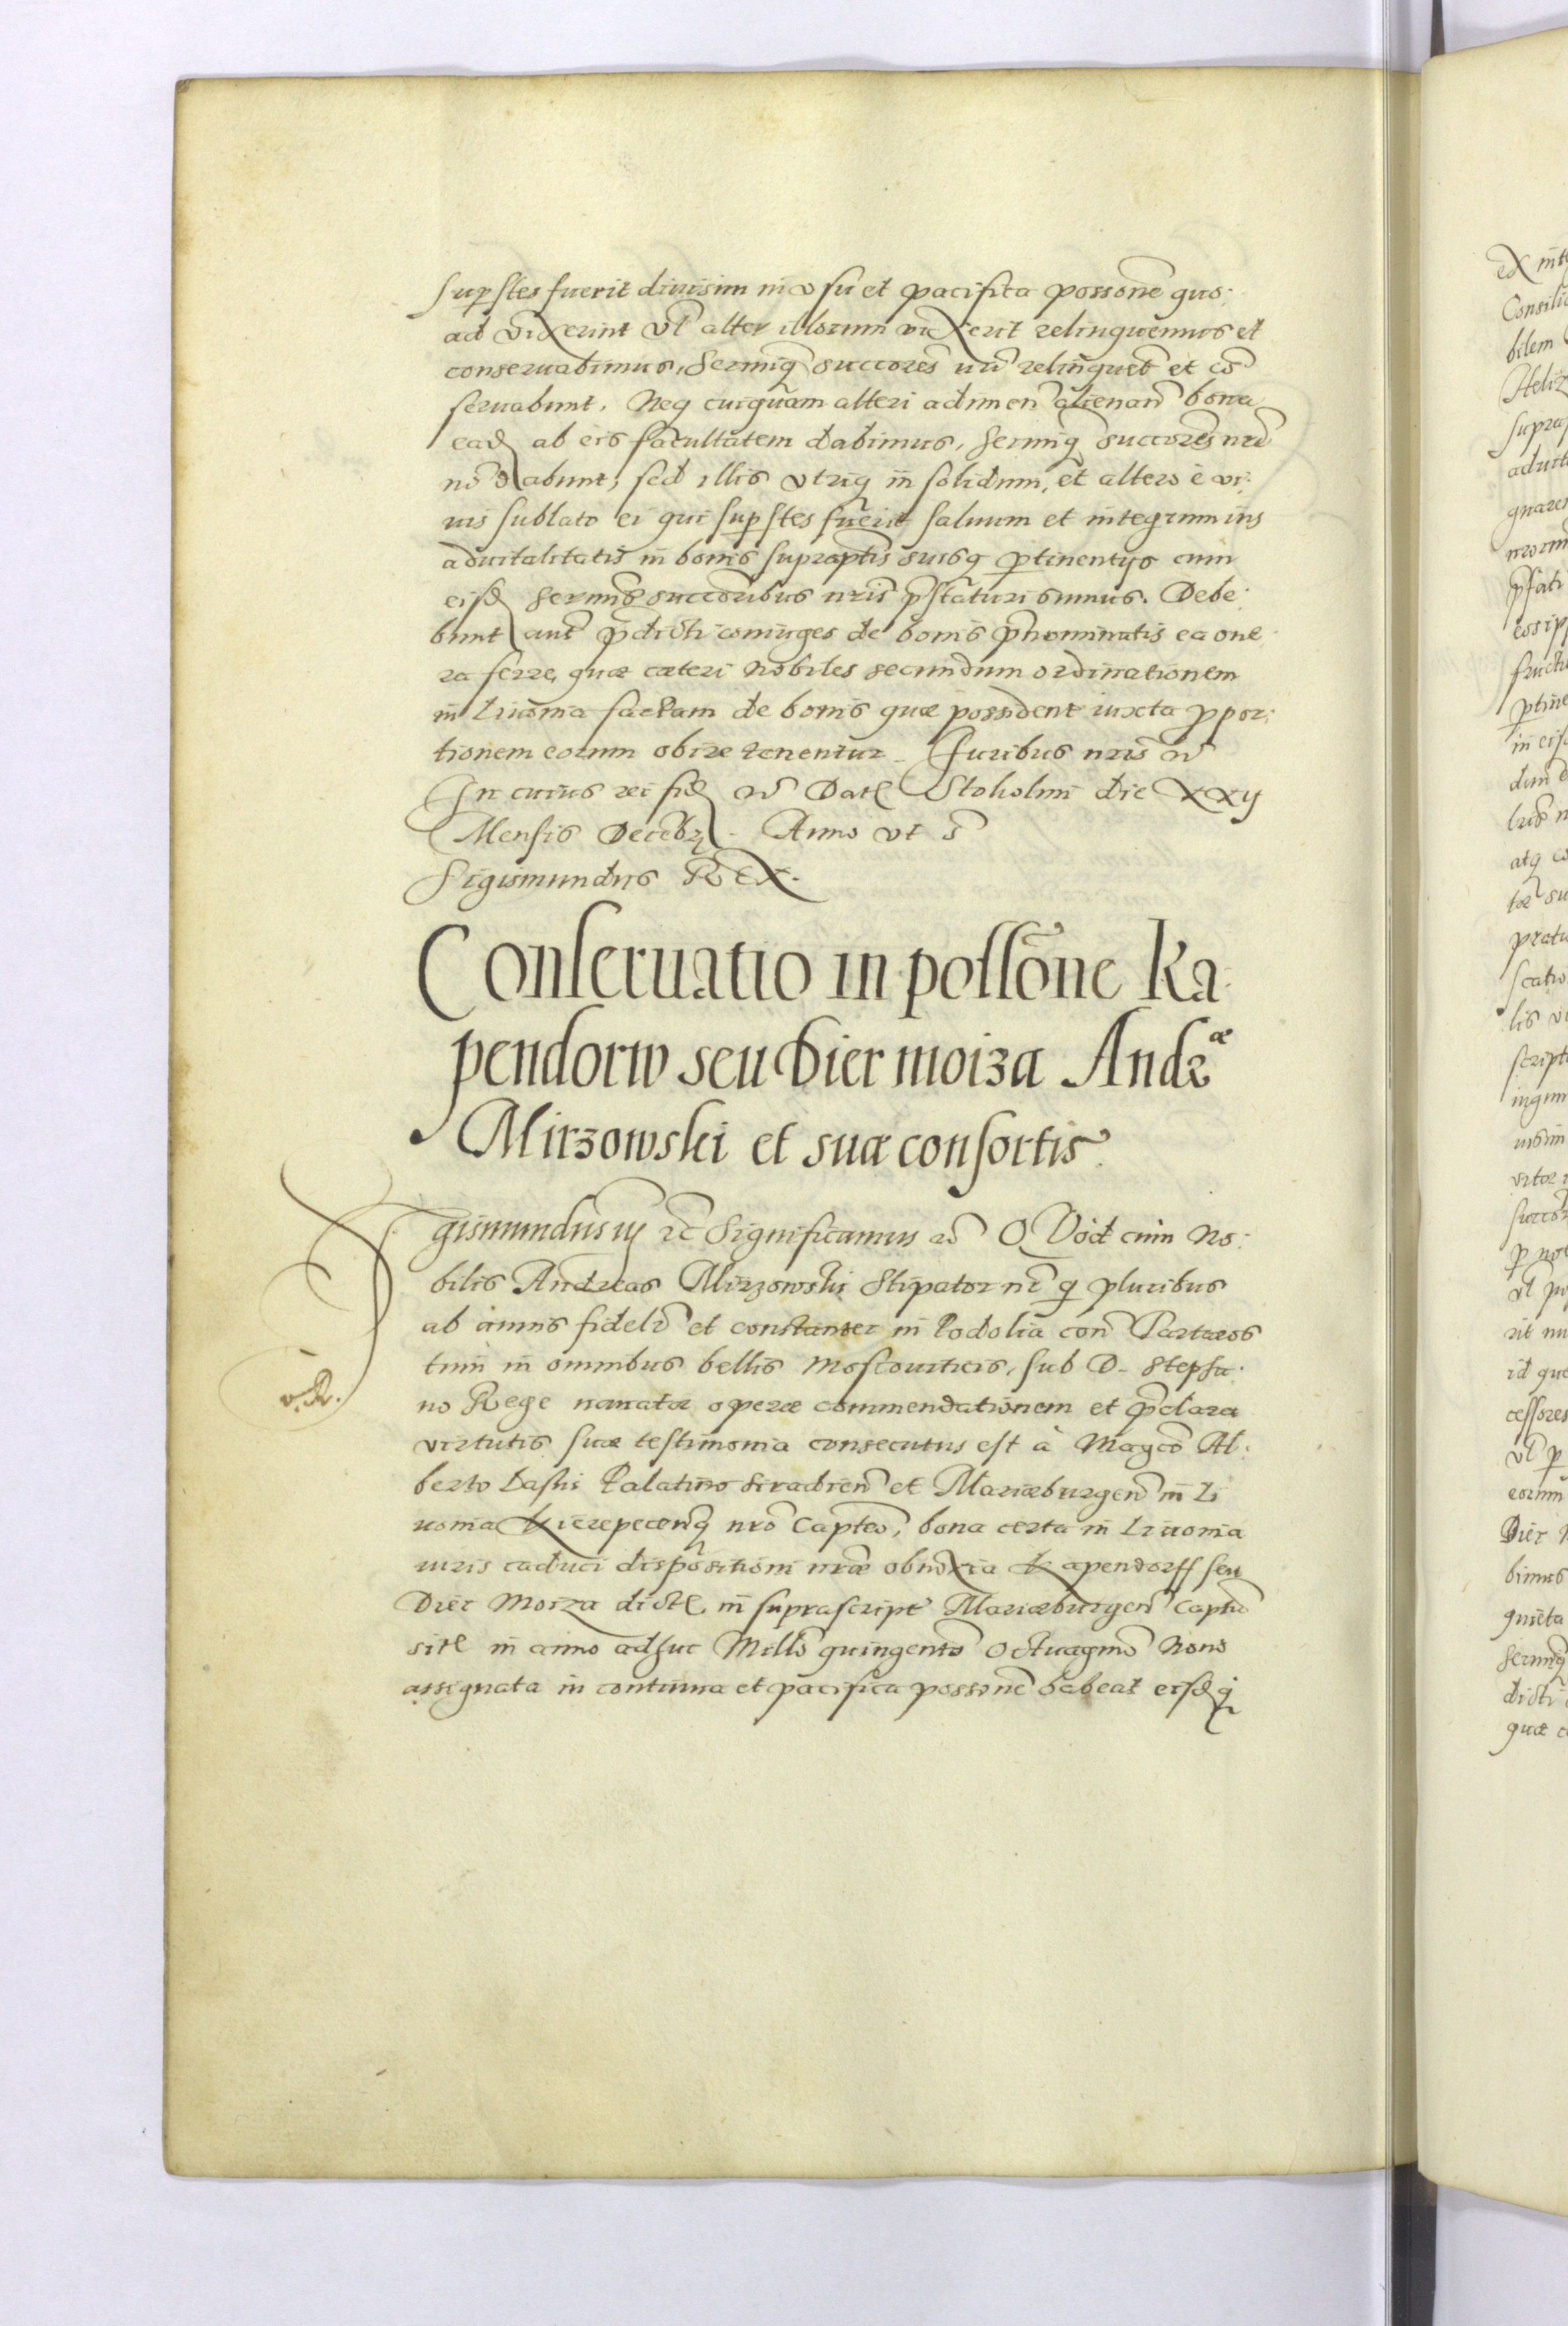 superstes fuerit diuisim in vsu et pacifica possone quo:
ad vixerint vl alter illorum vixerit relinquemus et
conseruabimus, Sermiq succores nri relinquet et co
seruabunt. Neq cuiquam alteri adimen alienan bona
ead ab eis facultatem dabimus, Sermiq succores nri
no dabunt, sed illis vtriq in solidum, et altero è vi:
uis sublato ei qui supstes fuerit saluum et integrum ius
aduitalitatis in bonis supraptis suisq ptinentijs cum
eisd Sermis succoribus nris pstaturi sumus. Debe:
bunt aut pdicti coniuges de bonis pnominatis ea one:
ra ferre, quæ cæteri Nobiles secundum ordinationem
in Liuonia factam de bonis quæ possident iuxta ppor:
tionem eorum obire tenentur. Juribus nris &
In cuius rei fid & Dat Stoholmi die XXij
Mensis Decebr. Anno vt s
Sigismundus REX.
Conseruatio in possone Ka
pendorw seu Dier moiza Andræ
Mirzowski et suæ consortis.
Sigismundus iij & Significamus & Quod cum No:
bilis Andreas Mirzowski Stipator nr q pluribus
ab annis fidelr et constanter in Podolia con Tartaros
tum in omnibus bellis Moscouiticis, sub D. Stepha:
no Rege nauatæ operæ commendationem et pclara
virtutis suæ testimonia consecutus est à Magco Al:
berto Laski Palatino Siradien et Mariæburgen in Li
uonia
nro Capteo, bona certa in Liuonia
iuris caduci dispositioni nræ obnoxia Kapendorff seu
Dier Moiza dict in suprascript Mariæburgen Captu
sit in anno adhuc Millo quingento Octuagmo Nono
assignata in continua et pacifica possone habeat eisdq
v. R.